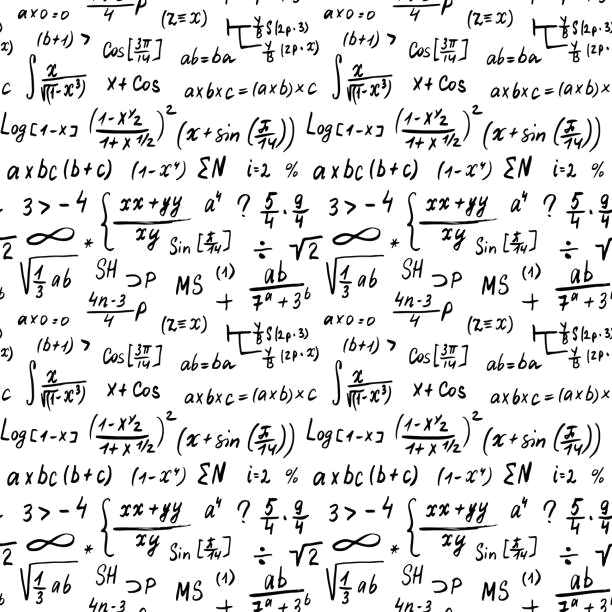 a×0=0 4 (Z≡X) S(2p·3) a×0=0 4 (Z≡X) S(2p·3)
(b+1) > Cos[3π/14] ab=ba (2p·x) (b+1) > Cos[3π/14] ab=ba
c ∫ x/√(1-x³) x+Cos a×b×c=(a×b)×c ∫ x/√(1-x³) x+Cos a×b×c=(a×b)×
Log[1-x] ((1-x½)/(1+x1/2))² (x+sin(π/14)) Log[1-x] ((1-x½)/(1+x1/2))² (x+sin(π/14))
a×bc(b+c) (1-x⁴) ΣN i=2 % a×bc(b+c) (1-x⁴) ΣN i=2 %
3>-4 { xx+yy/xy a⁴ ? 5/4·9/4 3>-4 { xx+yy/xy a⁴ ? 5/4·9/4
2 ∞ * Sin[π/14] ÷ √2 ∞ * Sin[π/14] ÷ √
√1/3 ab SH ⊃P MS (1) ab/7ᵃ+3ᵇ √1/3 ab SH ⊃P MS (1) ab/7ᵃ+3ᵇ
4n-3/4 P + 4n-3/4 P +
a×0=0 (Z≡X) S(2p·3) a×0=0 (Z≡X) S(2p·3)
x) (b+1) > Cos[3π/14] ab=ba (2p·x) (b+1) > Cos[3π/14] ab=ba
c ∫ x/√(1-x³) x+Cos a×b×c=(a×b)×c ∫ x/√(1-x³) x+Cos a×b×c=(a×b)×
Log[1-x] ((1-x½)/(1+x1/2))² (x+sin(π/14)) Log[1-x] ((1-x½)/(1+x1/2))² (x+sin(π/14))
a×bc(b+c) (1-x⁴) ΣN i=2 % a×bc(b+c) (1-x⁴) ΣN i=2 %
3>-4 { xx+yy/xy a⁴ ? 5/4·9/4 3>-4 { xx+yy/xy a⁴ ? 5/4·9/4
2 ∞ * Sin[π/14] ÷ √2 ∞ * Sin[π/14] ÷ √
√1/3 ab SH ⊃P MS (1) ab/7ᵃ+3ᵇ √1/3 ab SH ⊃P MS (1) ab/7ᵃ+3ᵇ
4n-3 + 4n-3 +